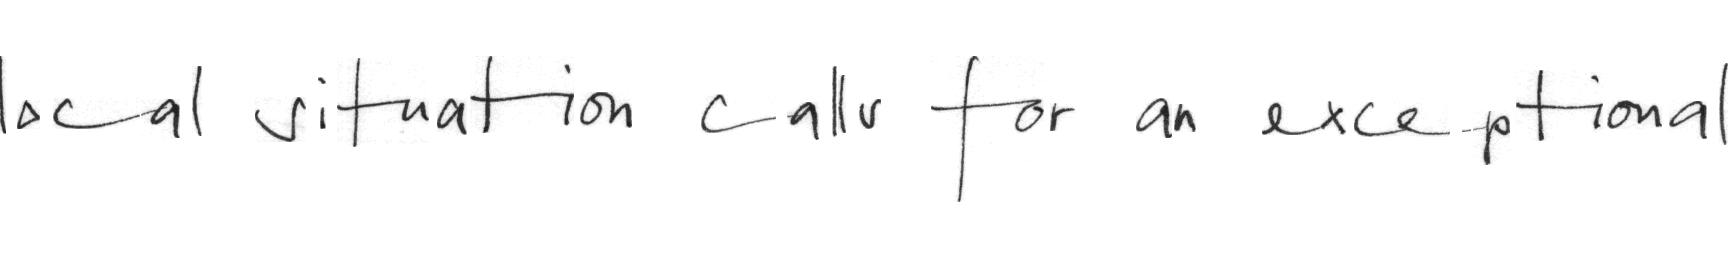 local situation calls for an exceptional